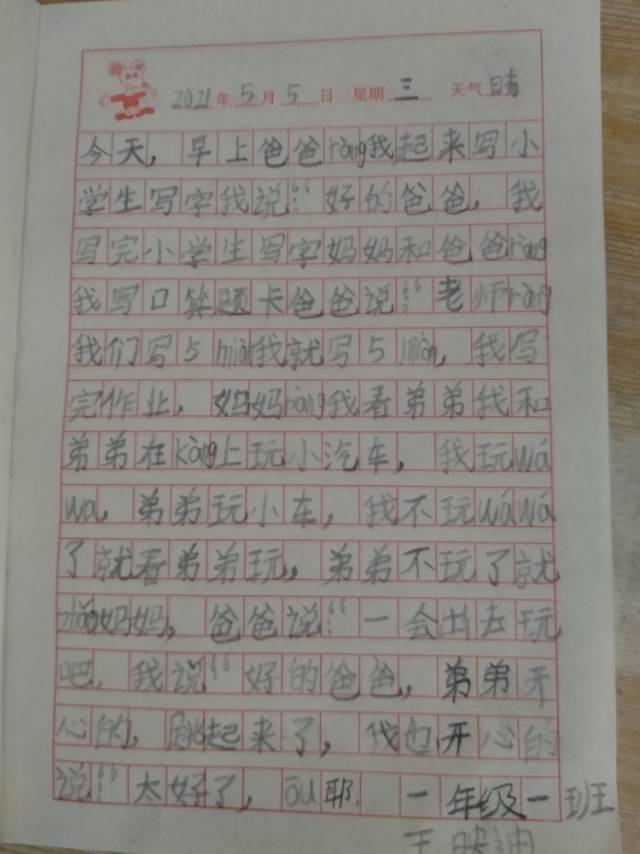 2021年5月5日 星期三 天气晴
今天，早上爸爸ràng我起来写小
学生写字我说：“好的爸爸，我
写完小学生写字妈妈和爸爸ràng
我写口算题卡爸爸说：“老师ràng
我们写5 miàn我就写5 miàn，我写
完作业，妈妈ràng我看弟弟我和
弟弟在kàng上玩小汽车，我玩wá
wa，弟弟玩小车，我不玩wá wá
了就看弟弟玩，弟弟不玩了就
妈妈，爸爸说：“一会出去玩
吧，我说：“好的爸爸，弟弟开
心的，跳起来了，我也开心的
说：“太好了，ōu耶 一年级一班
王